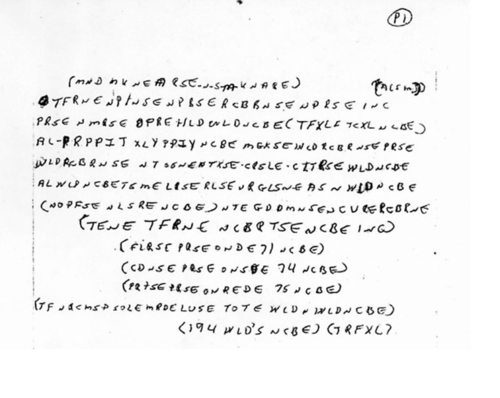 P1
(MND MKNEARSE-N-S-M-KNARE) (ACSM)
TFRNENPINSENPBSERCBBNSENPRSE INC
PRSE NMRSE OPREHLDWLDNCBE(TFXLF TCXL NCBE)
AL-PRPPIT XLYPPIY NCBE MGKSEWLDRCBRNSEPRSE
WLDRCBRNSE NTSGNENTXSE-CRSLE-CITRSE WLDNCBE
ALWLDNCBETSMELRSERLSEURGLSNEASNWLDNCBE
(NOPFSENLSRENCBE)NTEGDDMNSENCURERCBRNE
(TENE TFRNE NCBRTSENCBE INC)
(FLRSE PRSE ONDE 71 NCBE)
(CDNSE PRSE ONSDE 74 NCBE)
(PRTSE PRSE ONREDE 75 NCBE)
(TFNQCMSPSOLEMRDELUSE TOTE WLDNWLDNCBE)
(194 WLD'S NCBE)(TRFXL)